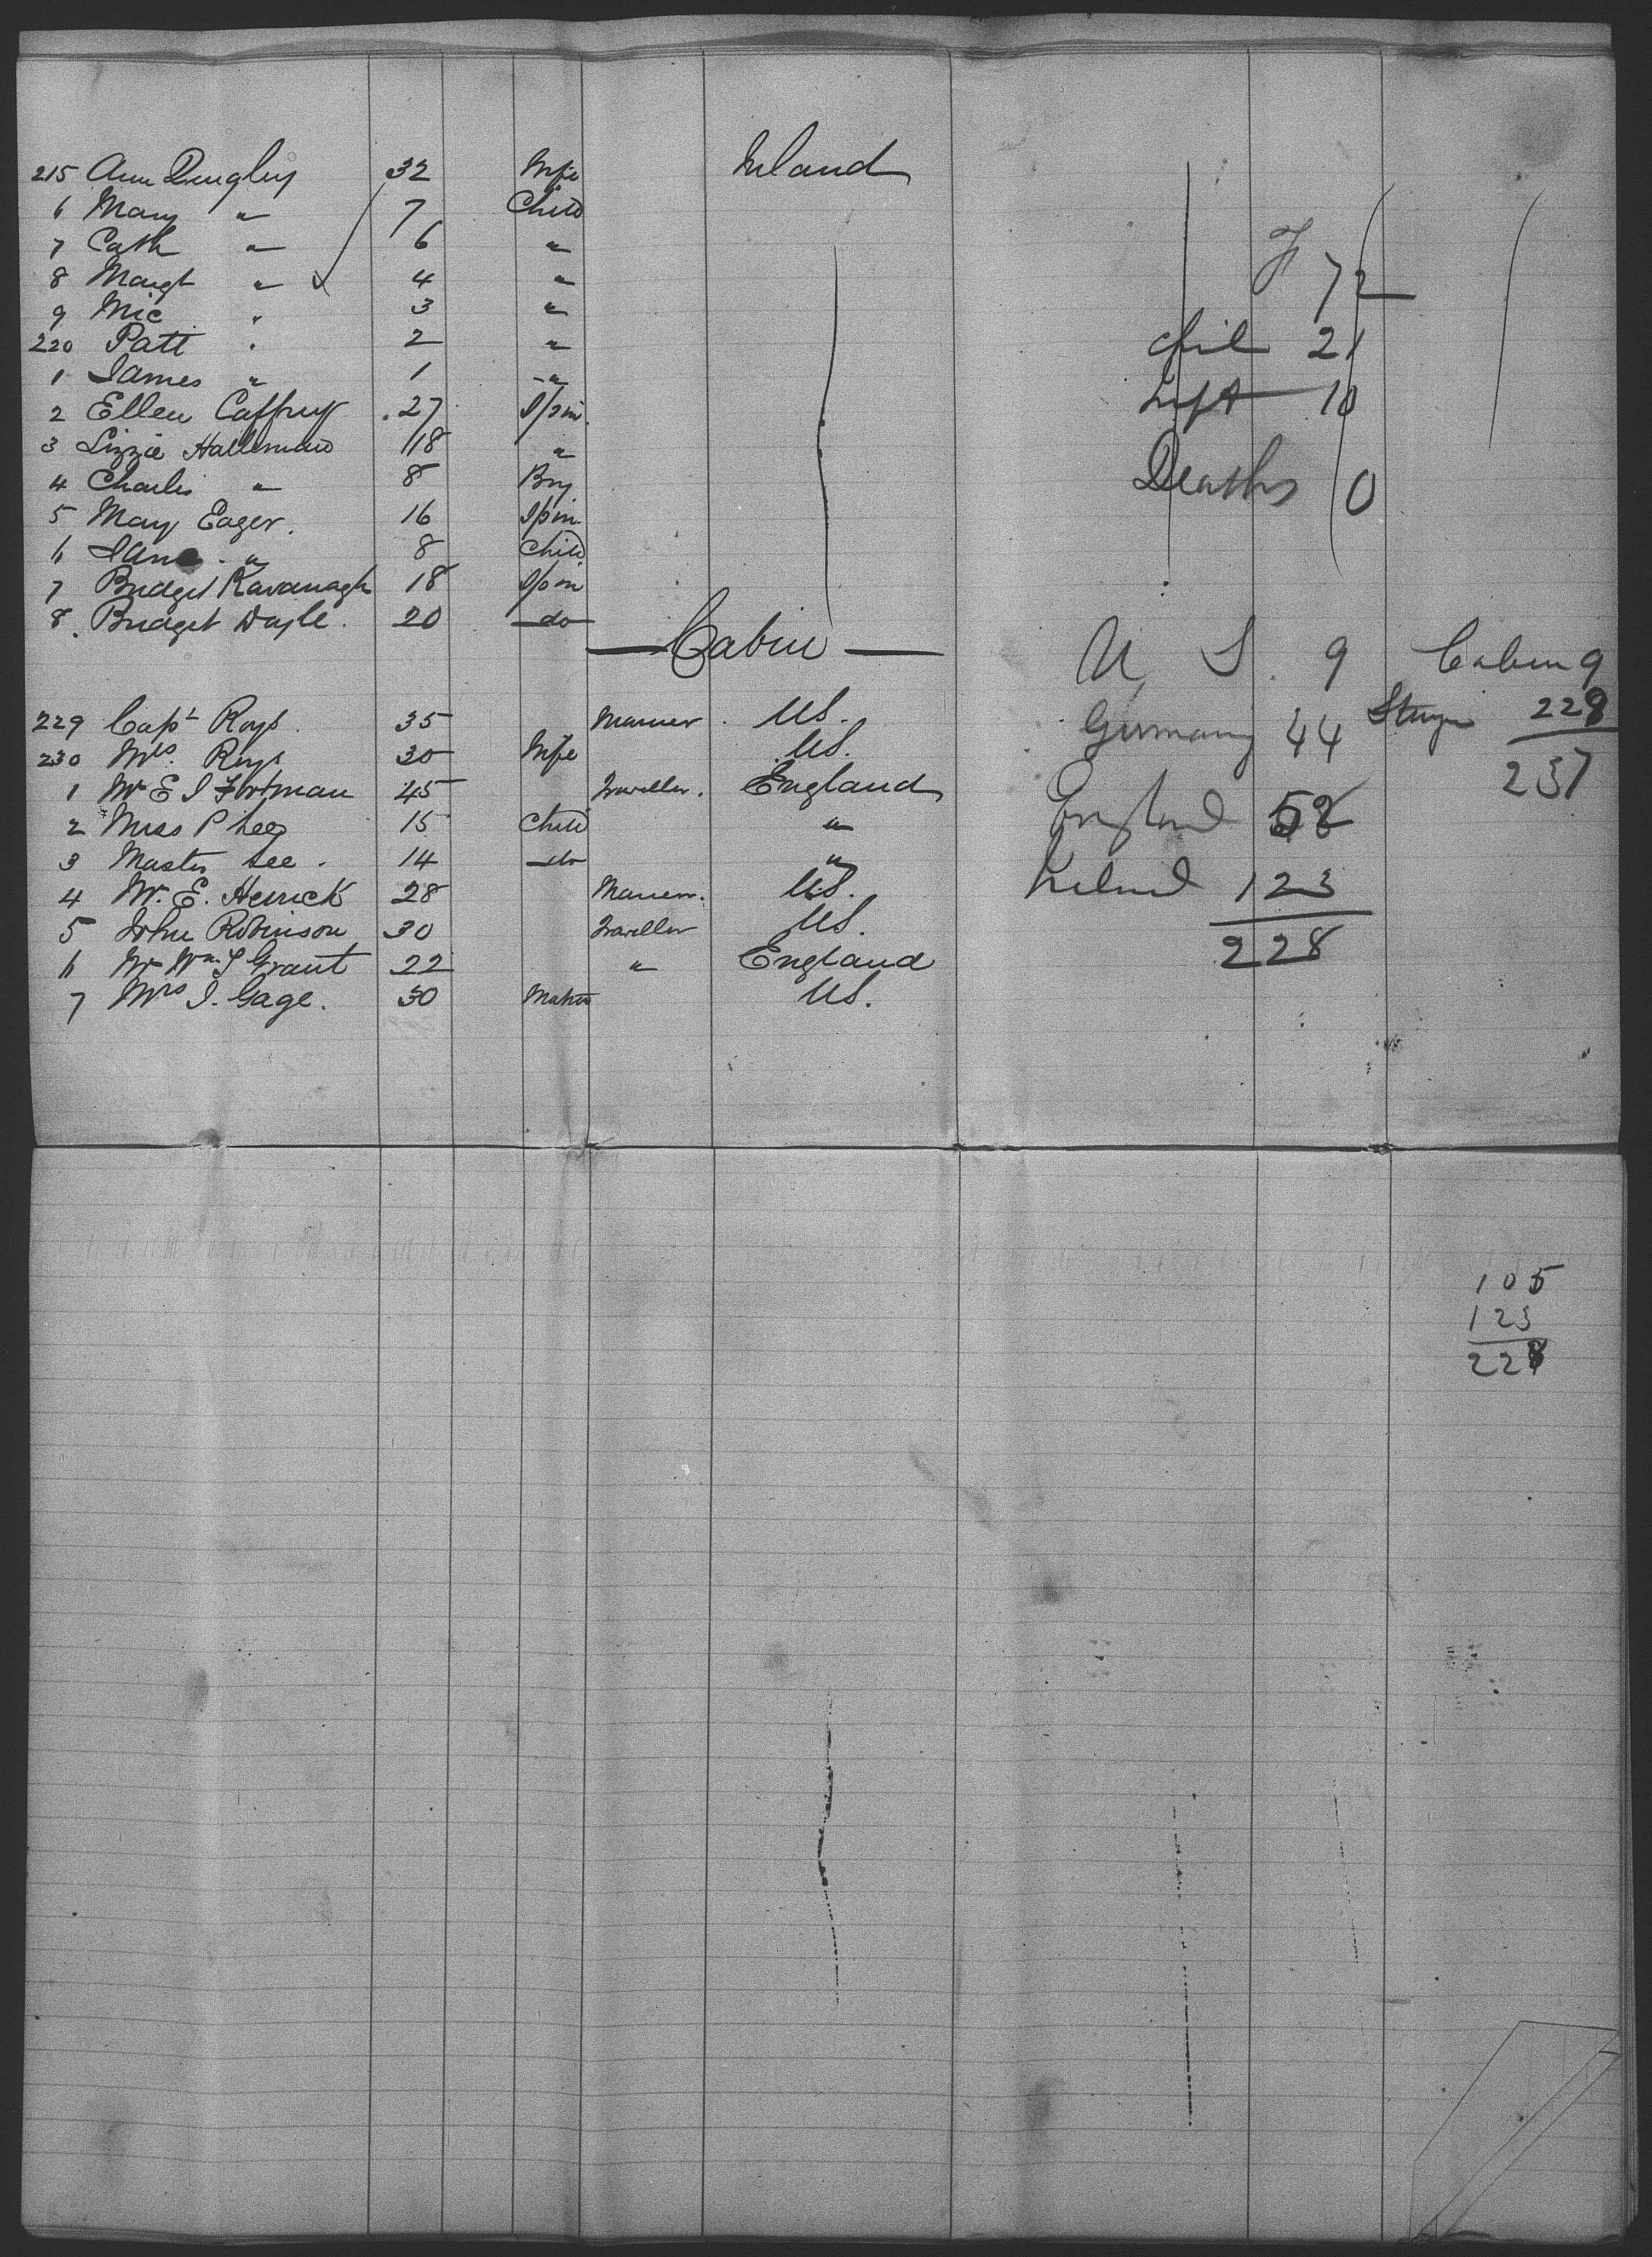 215 Ann Dingley 32 Wife Ireland
6 Mary " 7 Child
7 Cath " 6 "
8 Margt " 4 "
9 Mic " 3 "
220 Patt " 2 "
1 James " 1 "
2 Ellen Caffrey 27 Spin
3 Lizzie Halleman 18 "
4 Charles " 8 Boy
5 Mary Eager. 16 Spin
6 Jane " 8 Child
7 Bridget Kavanagh 18 Spin
8 Bridget Doyle. 20 do
F 72
Chil 21
Inft 10
Deaths 0
— Cabin —
229 Capt Rays. 35 Mariner. US.
230 Mrs. Rays 30 Wife US.
1 Mr E J Fortman 45 Traveller. England
2 Miss P Lee 15 Child "
3 Master Lee. 14 do "
4 Mr. E. Herrick 28 Mariner. US.
5 John Robinson 30 Traveller US.
6 Mr Wm. J Grant 22 " England
7 Mrs J. Gage. 30 Matron US.
U S. 9
Germany 44
England 52
Ireland 123
228
Cabin 9
Steerage 228
237
105
123
228